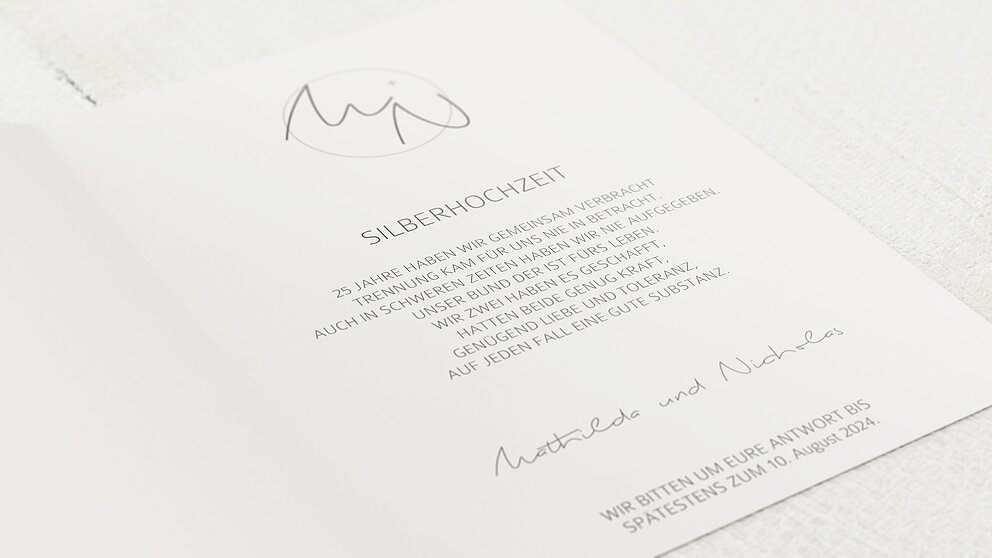 MN
SILBERHOCHZEIT
25 JAHRE HABEN WIR GEMEINSAM VERBRACHT
TRENNUNG KAM FÜR UNS NIE IN BETRACHT.
AUCH IN SCHWEREN ZEITEN HABEN WIR NIE AUFGEGEBEN.
UNSER BUND DER IST FÜRS LEBEN.
WIR ZWEI HABEN ES GESCHAFFT,
HATTEN BEIDE GENUG KRAFT,
GENÜGEND LIEBE UND TOLERANZ,
AUF JEDEN FALL EINE GUTE SUBSTANZ.
Mathilda und Nicholas
WIR BITTEN UM EURE ANTWORT BIS
SPÄTESTENS ZUM 10. August 2024.